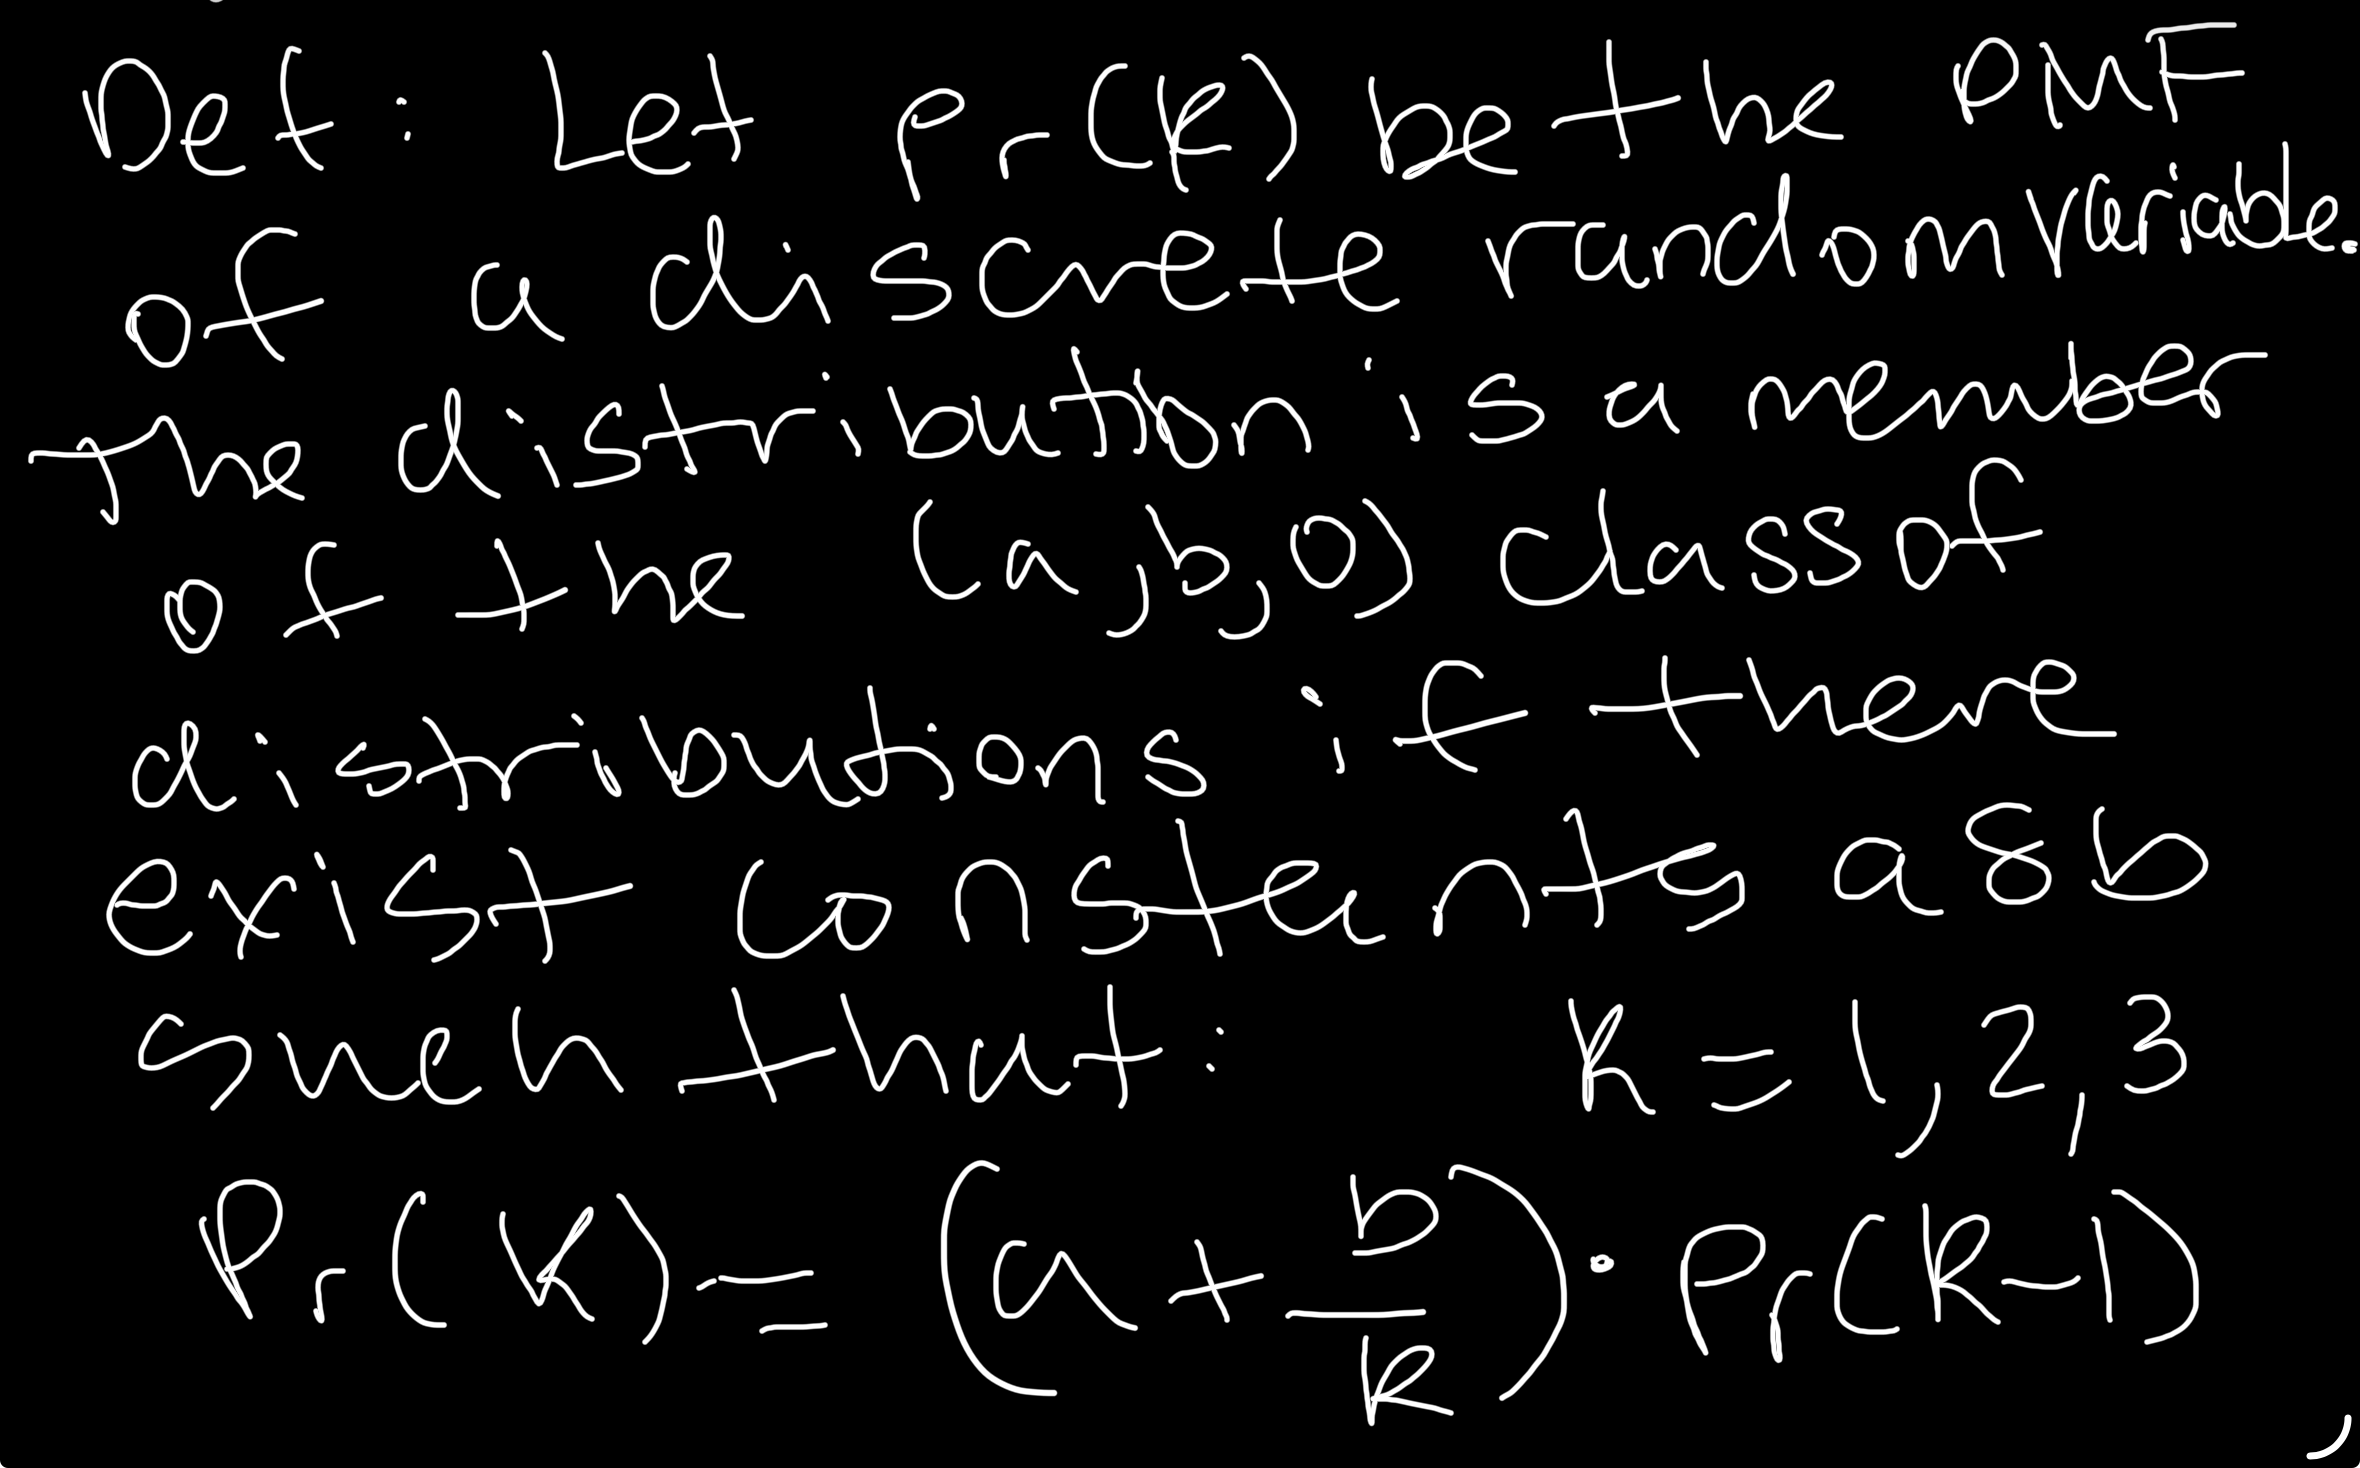 Def: Let Pr(k) be the PMF
of a discrete random variable.
The distribution is a member
of the (a,b,0) class of
distributions if there
exist constants a & b
such that: k = 1, 2, 3
Pr(k) = (a + b/k) · Pr(k-1)